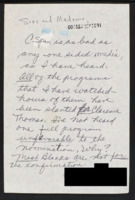 Sirs and Madams
C-Span is as bad as
any one sided media,
as I have heard.
All of the programs
that I have watched-
house of them have
been slanted for Clarence
Thomas. I've had heard
one full program
unfavorable to the
nomination. Why?
Most Blacks are not for
the confirmation